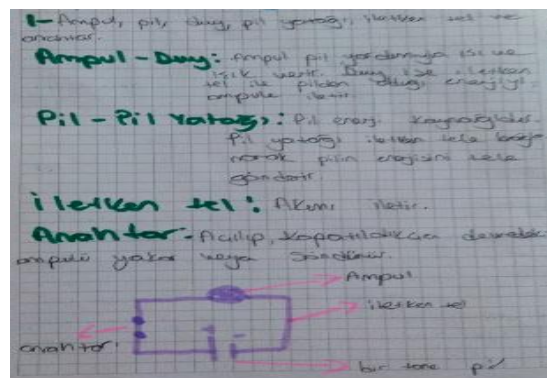 1- Ampul, pil, duy, pil yatağı, iletken tel ve
anahtar.
Ampul - Duy: Ampul pil yardımıyla ısı ve
ışık verir. Duy ise iletken
tel ile pilden aldığı enerjiyi
ampule iletir.
Pil - Pil Yatağı: Pil enerji kaynağıdır.
Pil yatağı iletken tele
pilin enerjisini tele
gönderir.
iletken tel: Akımı iletir.
Anahtar: Açılıp, kapatıldıkça devredeki
ampulü yakar veya söndürür.
Ampul
iletken tel
anahtar
bir tane pil